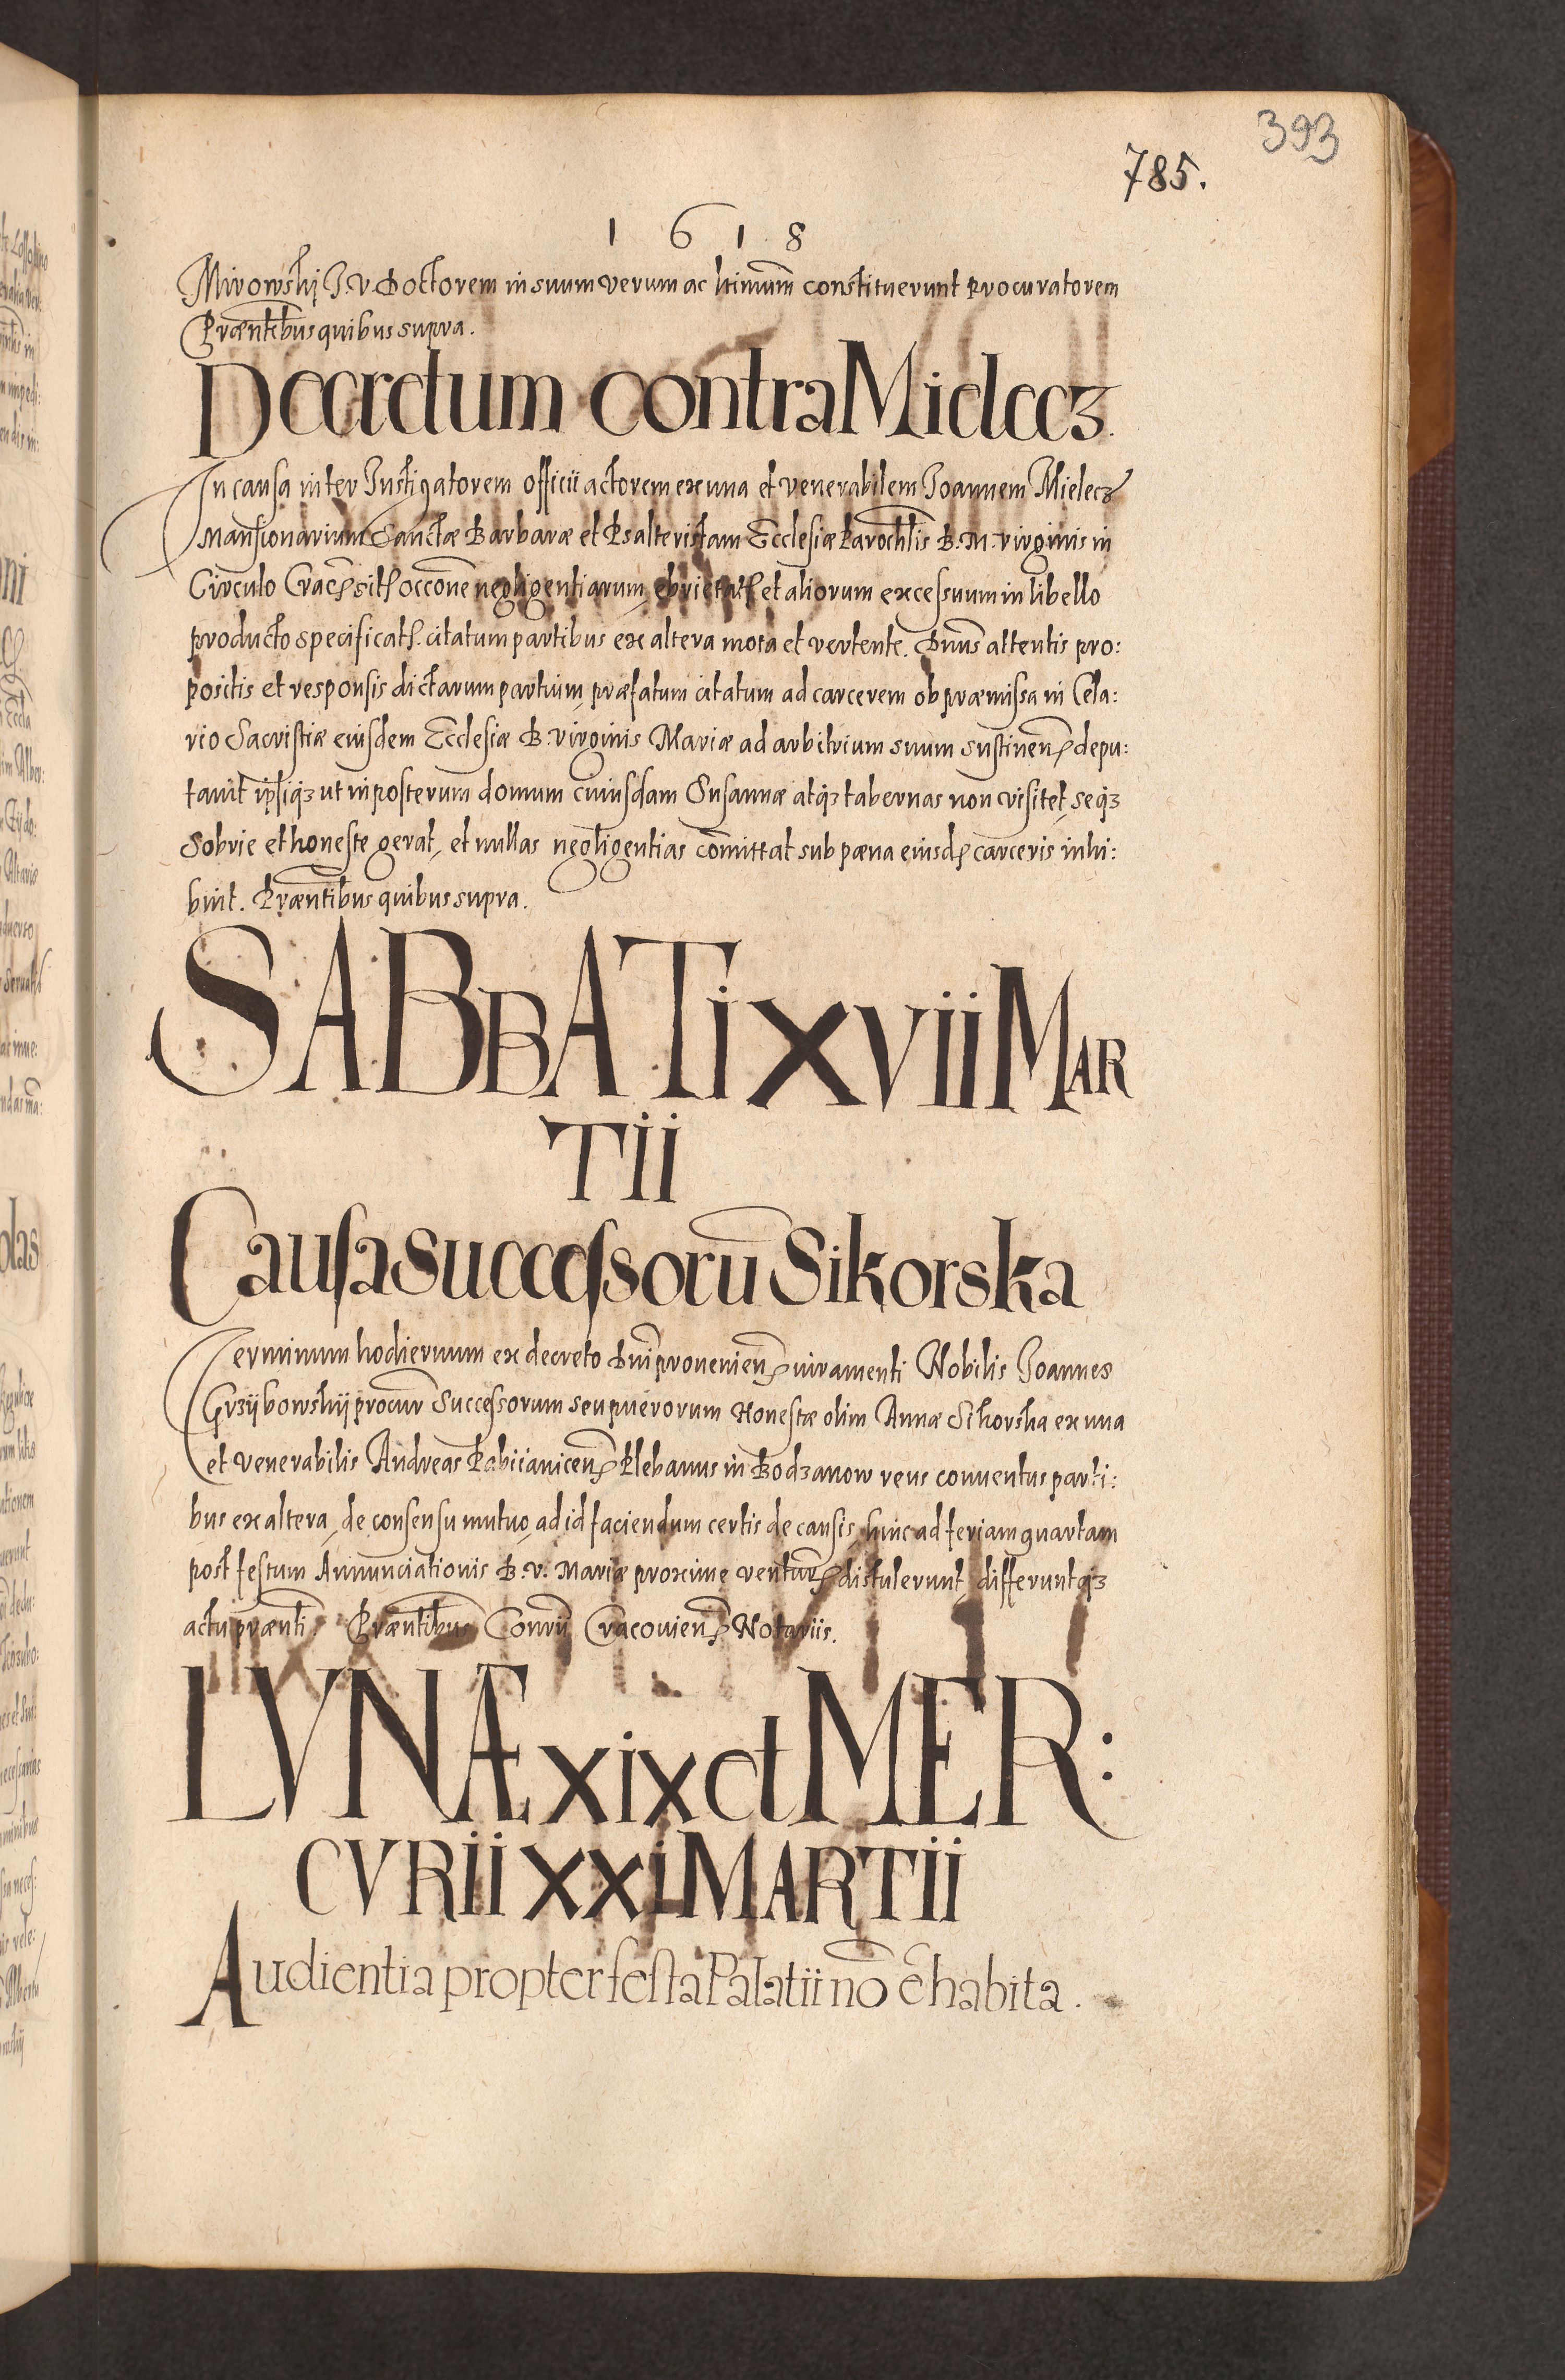 393
785.
1 6 1 8
Mirowskị J. V. Doctorem in suum verum ac ltimum̃ constituerunt Procuratorem
Præntĩbus quibus supra.
Decretum contra Mielecz.
In causa inter Instigatorem officii actorem ex una et venerabilem Joannem Mielecz
Mansionarium Sanctæ Barbaræ et Psalteristam Ecclesiæ Parochlis B. M. Virginis in
Circulo Crac sit occonẽ negligentiarum, ebrietat et aliorum excessuum in libello
producto specificat. citatum partibus ex altera mota et vertente. Dnus̃ attentis pro:
positis et responsis dictarum partium, præfatum citatum ad carcerem ob præmissa in Cela:
rio Sacristiæ eiusdem Ecclesiæ B. Virginis Mariæ ad arbitrium suum sustinen depu:
tavit ipsiqꝫ ut in posterum domum cuiusdam Susannæ atqꝫ tabernas non visitet, seqꝫ
sobrie et honeste gerat, et nullas negligentias com̃ittat sub pæna eiusd carceris inhi:
buit. Præntĩbus quibus supra.
SABBATI XVII MAR
TII
Causa Successorũ Sikorska
Terminum hodiernum ex decreto Dnĩ provenien iuramenti Nobilis Joannes
Grzÿbowskÿ procur̃ Successorum seu puerorum Honestæ olim Annæ Sikorska ex una
et venerabilis Andreas Pabiianicen Plebanus in Bodzanow reus conventus parti:
bus ex altera, de consensu mutuo, ad id faciendum certis de causis, hinc ad feriam quartam
post festum Annunciationis B. V. Mariæ proxime ventur distulerunt, differuntqꝫ
actu præntĩ Præntĩbus Conrũ Cracovien Notariis.
LVNÆ XIX et MER:
CVRII XXI MARTII
Audientia propter festa Palatii nõ ẽ habita.